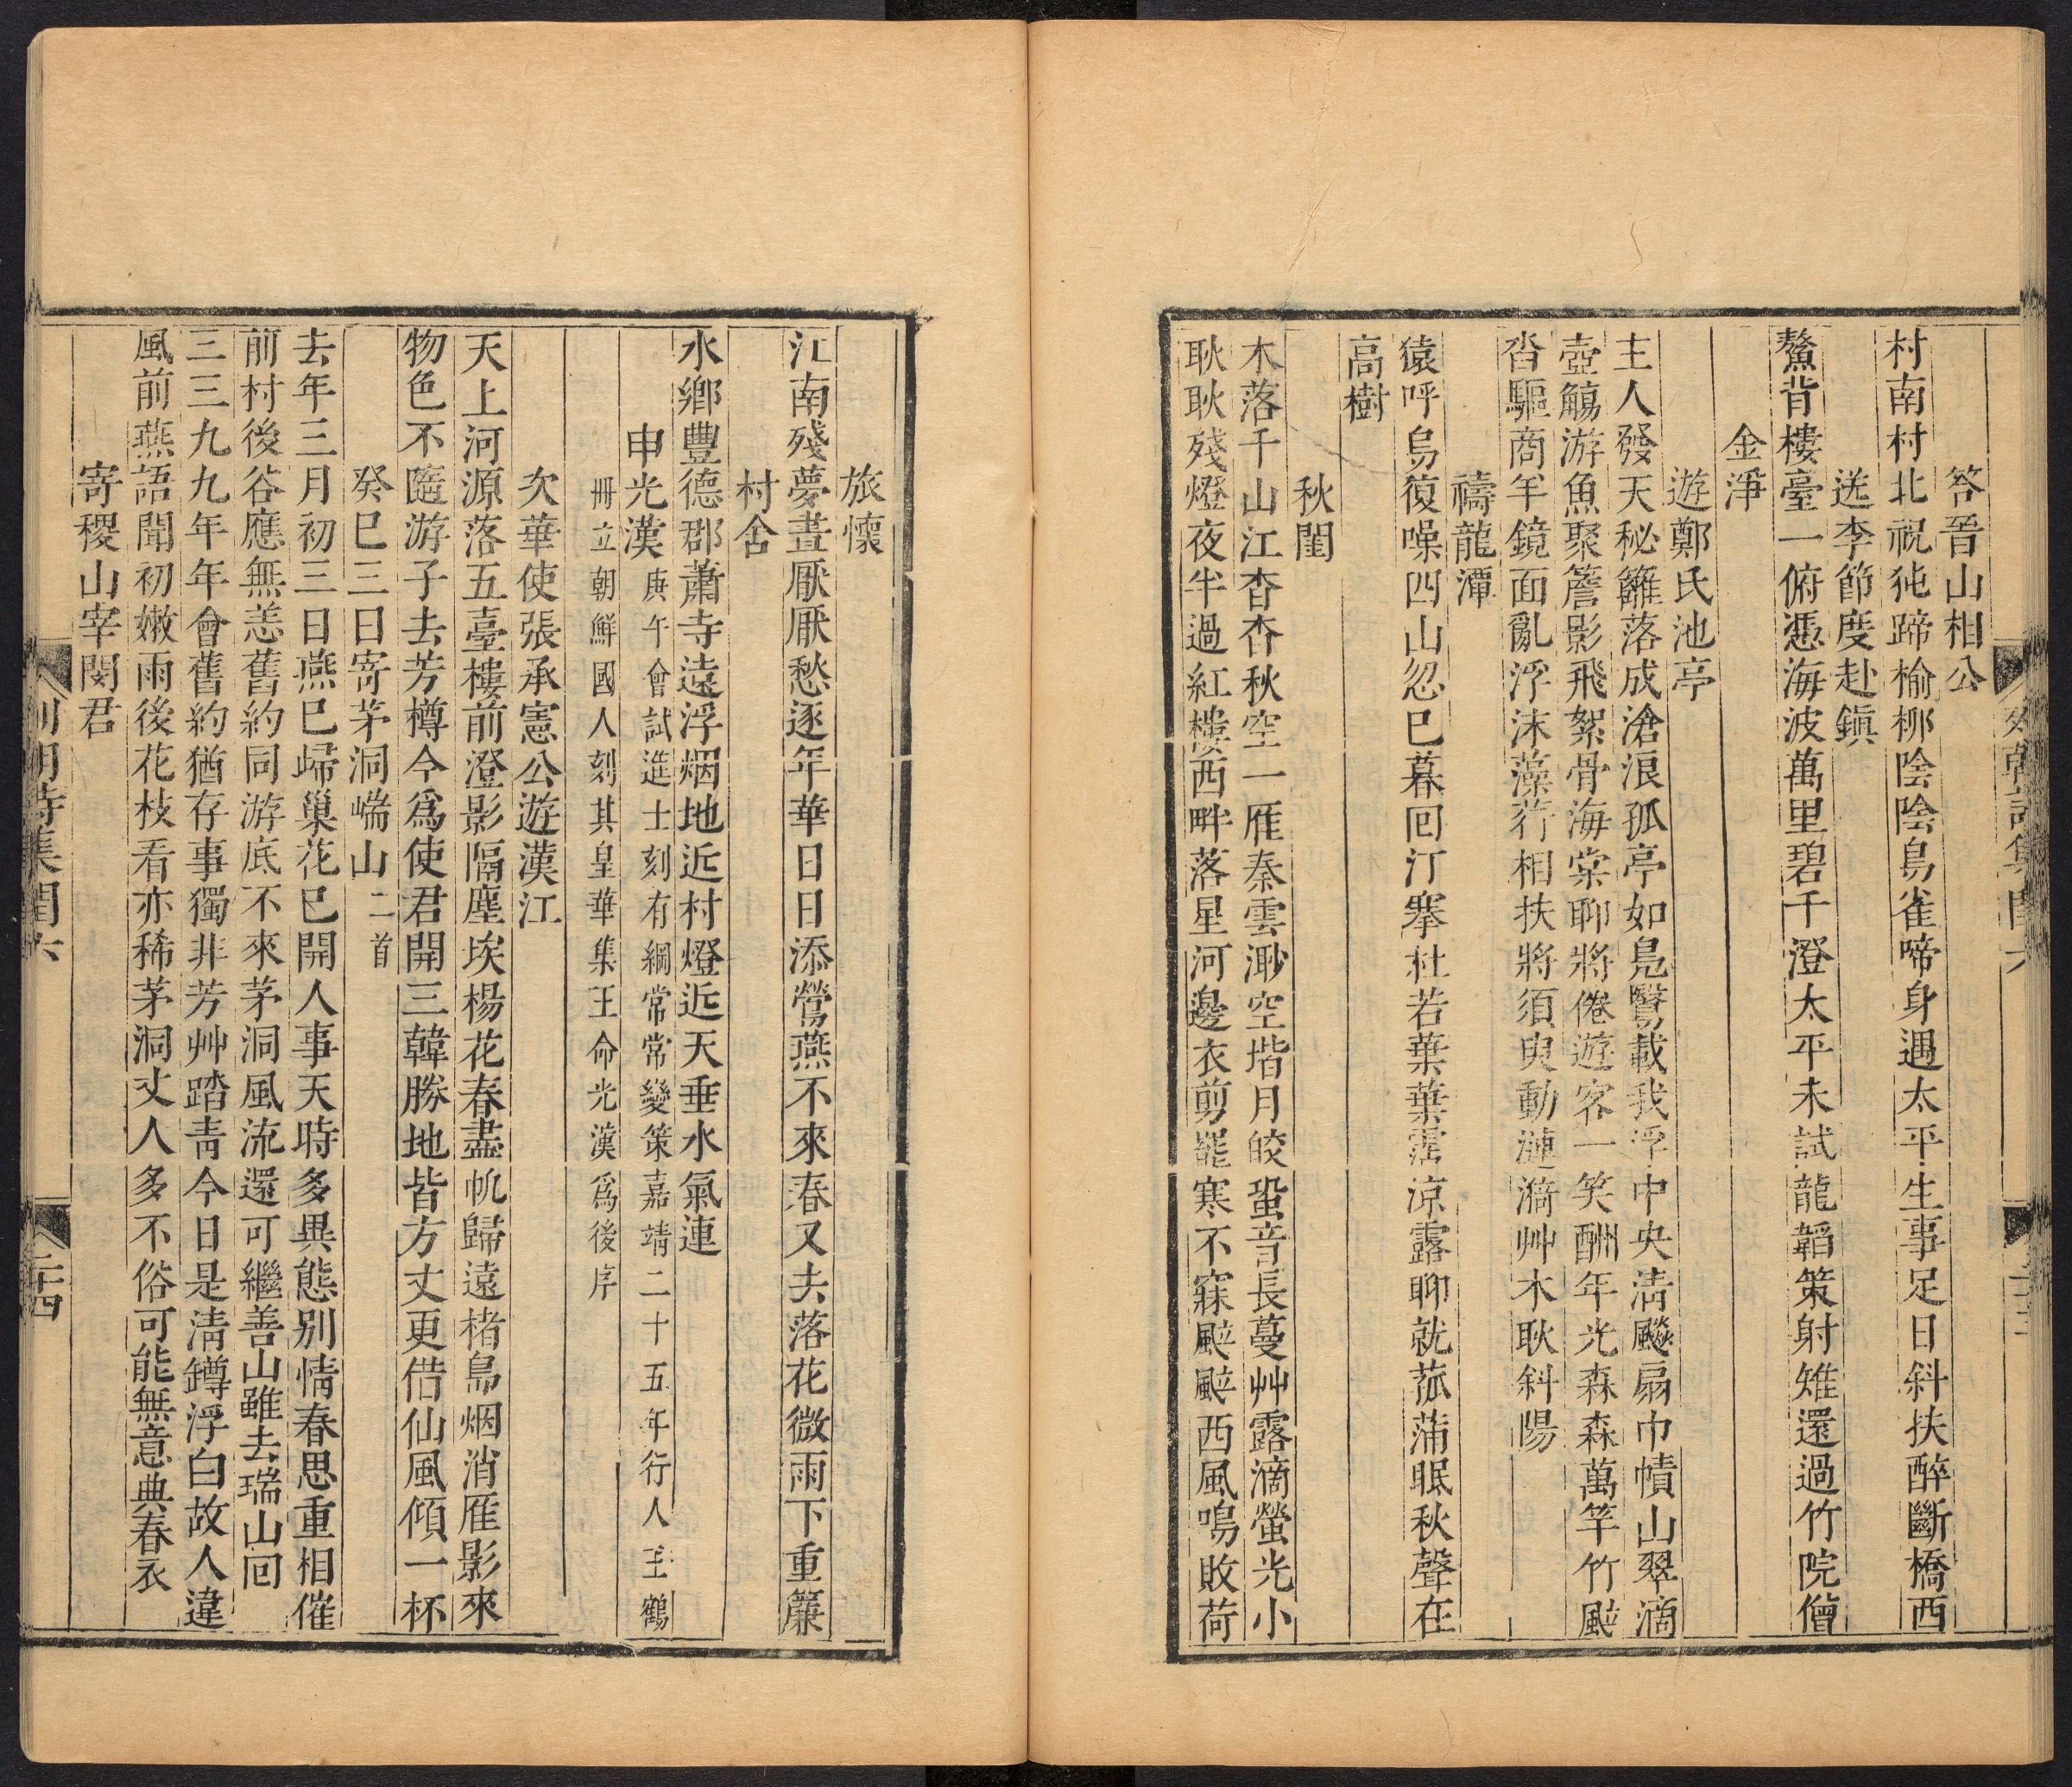 答晉山相公
村南村北祝㹠蹄榆柳陰陰鳥雀啼身遇太平生事足日斜扶醉斷橋西
送李節度赴鎭
鰲背樓臺一俯憑海波萬里碧千澄太平未試龍韜策射雉還過竹院僧
金淨
遊鄭氏池亭
主人發天秘籬落成滄浪孤亭如鳧鷖載我浮中央淸飈扇巾幘山翠滴
壺觴游魚聚簷影飛絮骨海棠聊將倦遊客一笑酬年光森森萬竿竹颭
沓驅商羊鏡面亂浮沫藻荇相扶將須臾動漣漪艸木耿斜陽
禱龍潭
猿呼烏復噪四山忽巳暮回汀搴杜若葉葉霑凉露聊就菰蒲眠秋聲在
高樹
秋閨
木落千山江杳杳秋空一雁秦雲渺空堦月皎蛩音長蔓艸露滴螢光小
耿耿殘燈夜半過紅樓西畔落星河邊衣剪罷寒不寐颭颭西風鳴敗荷
旅懷
江南殘夢晝厭厭愁逐年華日日添鶯燕不來春又去落花微雨下重簾
村舍
水鄕豐德郡蕭寺遠浮烟地近村燈近天垂水氣連
申光漢 庚午會試進士刻有綱常常變策嘉靖二十五年行人王鶴
冊立朝鮮國人刻其皇華集王命光漢爲後序
次華使張承憲公遊漢江
天上河源落五臺樓前澄影隔塵埃楊花春盡帆歸遠楮島烟消雁影來
物色不隨游子去芳樽今爲使君開三韓勝地皆方丈更借仙風傾一杯
癸巳三日寄茅洞耑山 二首
去年三月初三日燕巳歸巢花巳開人事天時多異態别情春思重相催
前村後谷應無恙舊約同游底不來茅洞風流還可繼善山雖去瑞山回
三三九九年年會舊約猶存事獨非芳艸踏靑今日是淸鐏浮白故人違
風前燕語聞初嫩雨後花枝看亦稀茅洞丈人多不俗可能無意典春衣
寄稷山宰閔君
列朝詩集閏六
二十四